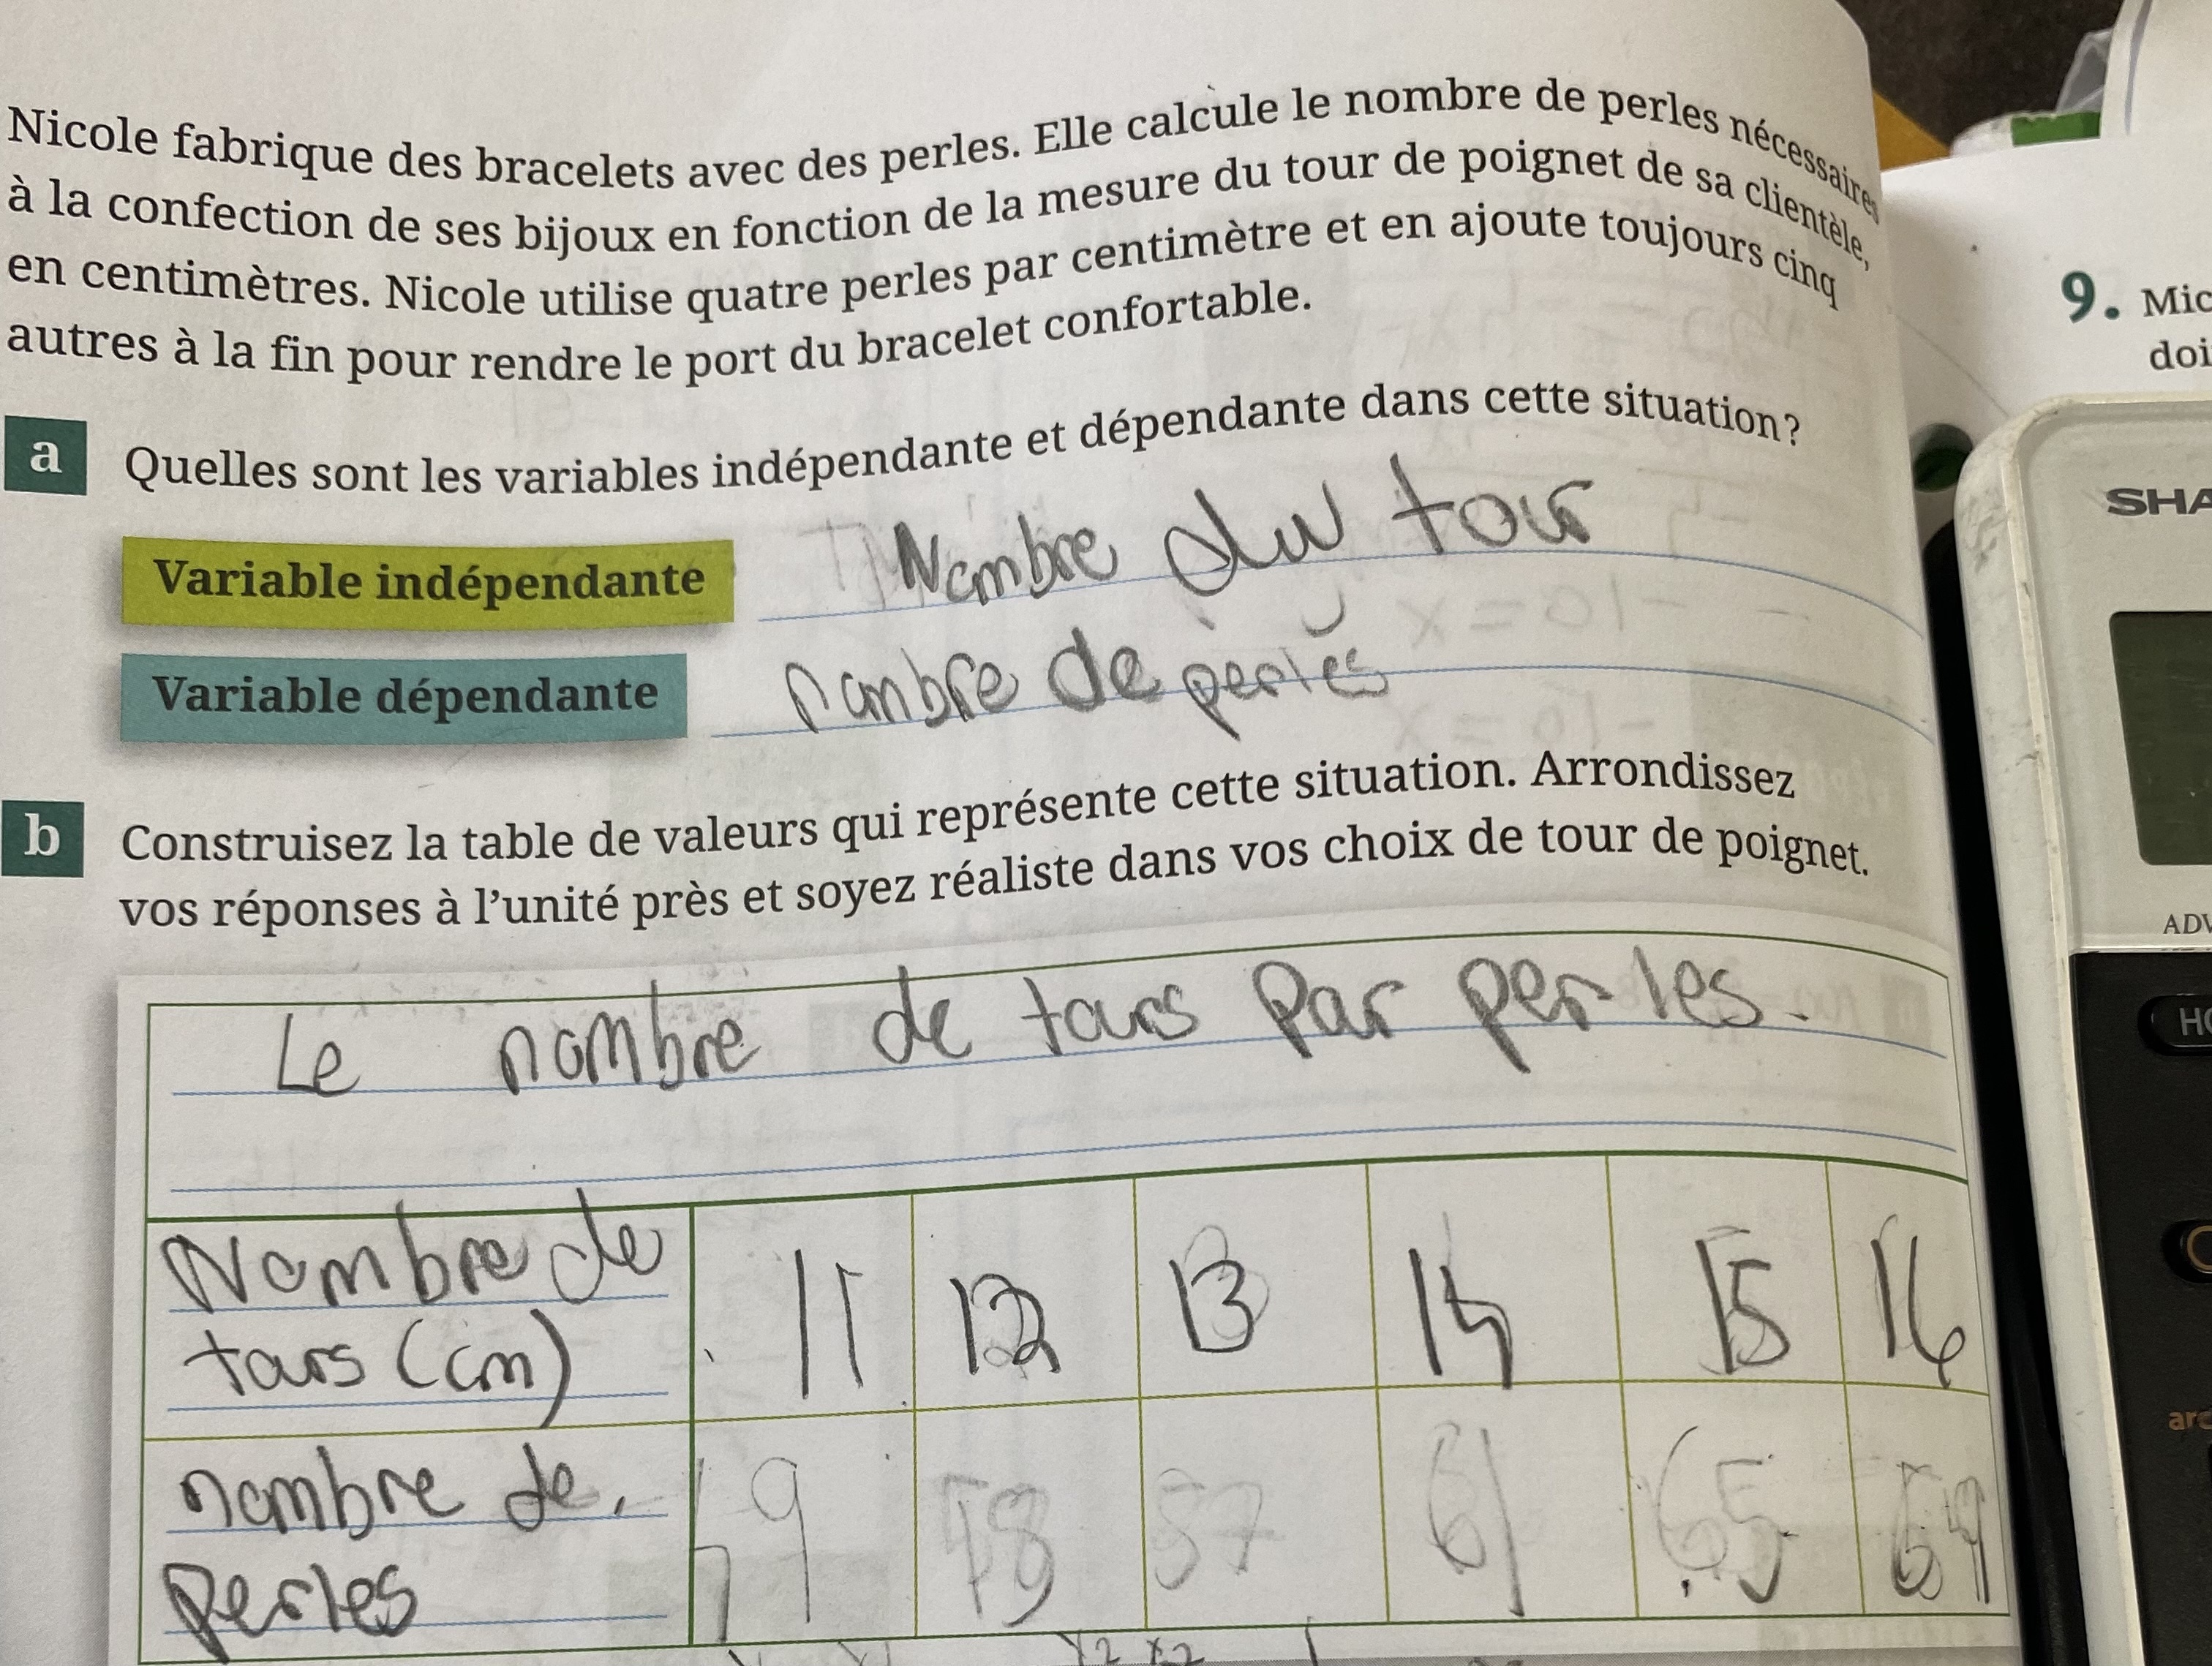 Nicole fabrique des bracelets avec des perles. Elle calcule le nombre de perles nécessaires
à la confection de ses bijoux en fonction de la mesure du tour de poignet de sa clientèle,
en centimètres. Nicole utilise quatre perles par centimètre et en ajoute toujours cinq
autres à la fin pour rendre le port du bracelet confortable.
a Quelles sont les variables indépendante et dépendante dans cette situation?
Variable indépendante Nombre du tour
Variable dépendante nombre de perles
b Construisez la table de valeurs qui représente cette situation. Arrondissez
vos réponses à l'unité près et soyez réaliste dans vos choix de tour de poignet.
Le nombre de tours par perles.
Nombre de
tours (cm) 11 12 13 14 15 16
nombre de
perles 57 61 65 69
x2 x2
9. Mic
doi
SHA
ADV
HO
arc